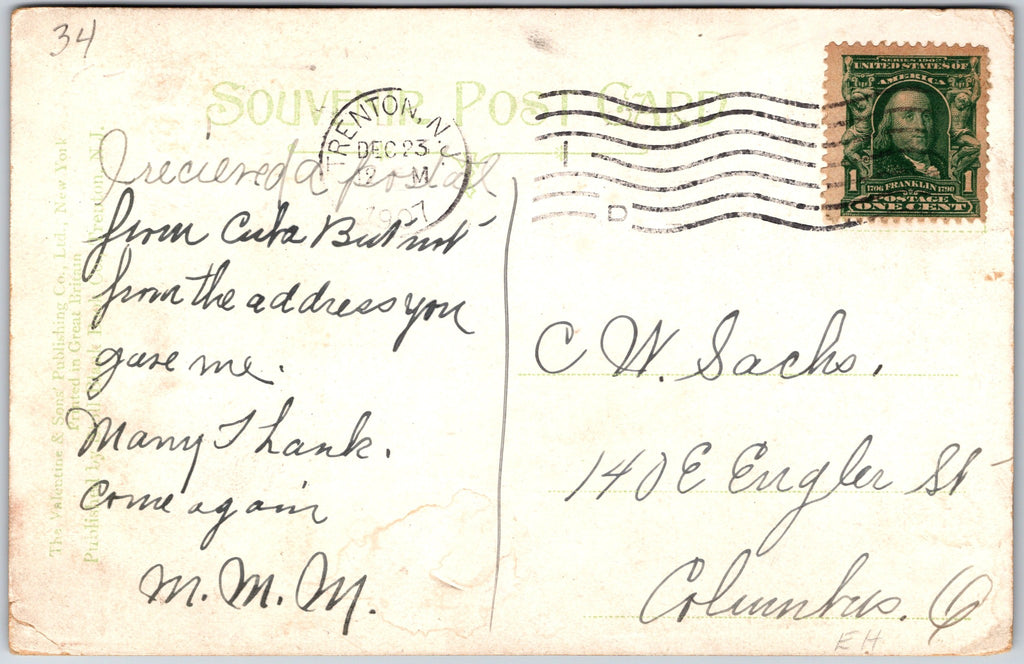 34
SOUVENIR POST CARD
TRENTON, N.
DEC 23
M
1907
D
SERIES 1902
UNITED STATES OF
AMERICA
1 1
1706 FRANKLIN 1790
POSTAGE
ONE CENT
I recieved a postal
from Cuba But not
from the address you
gave me.
Many Thank.
come again
M. M. M.
C W. Sachs.
140 E Engler St
Columbus. O
EH
The Valentine & Sons Publishing Co., Ltd., New York
Printed in Great Britain
Published by Trenton, N.J.